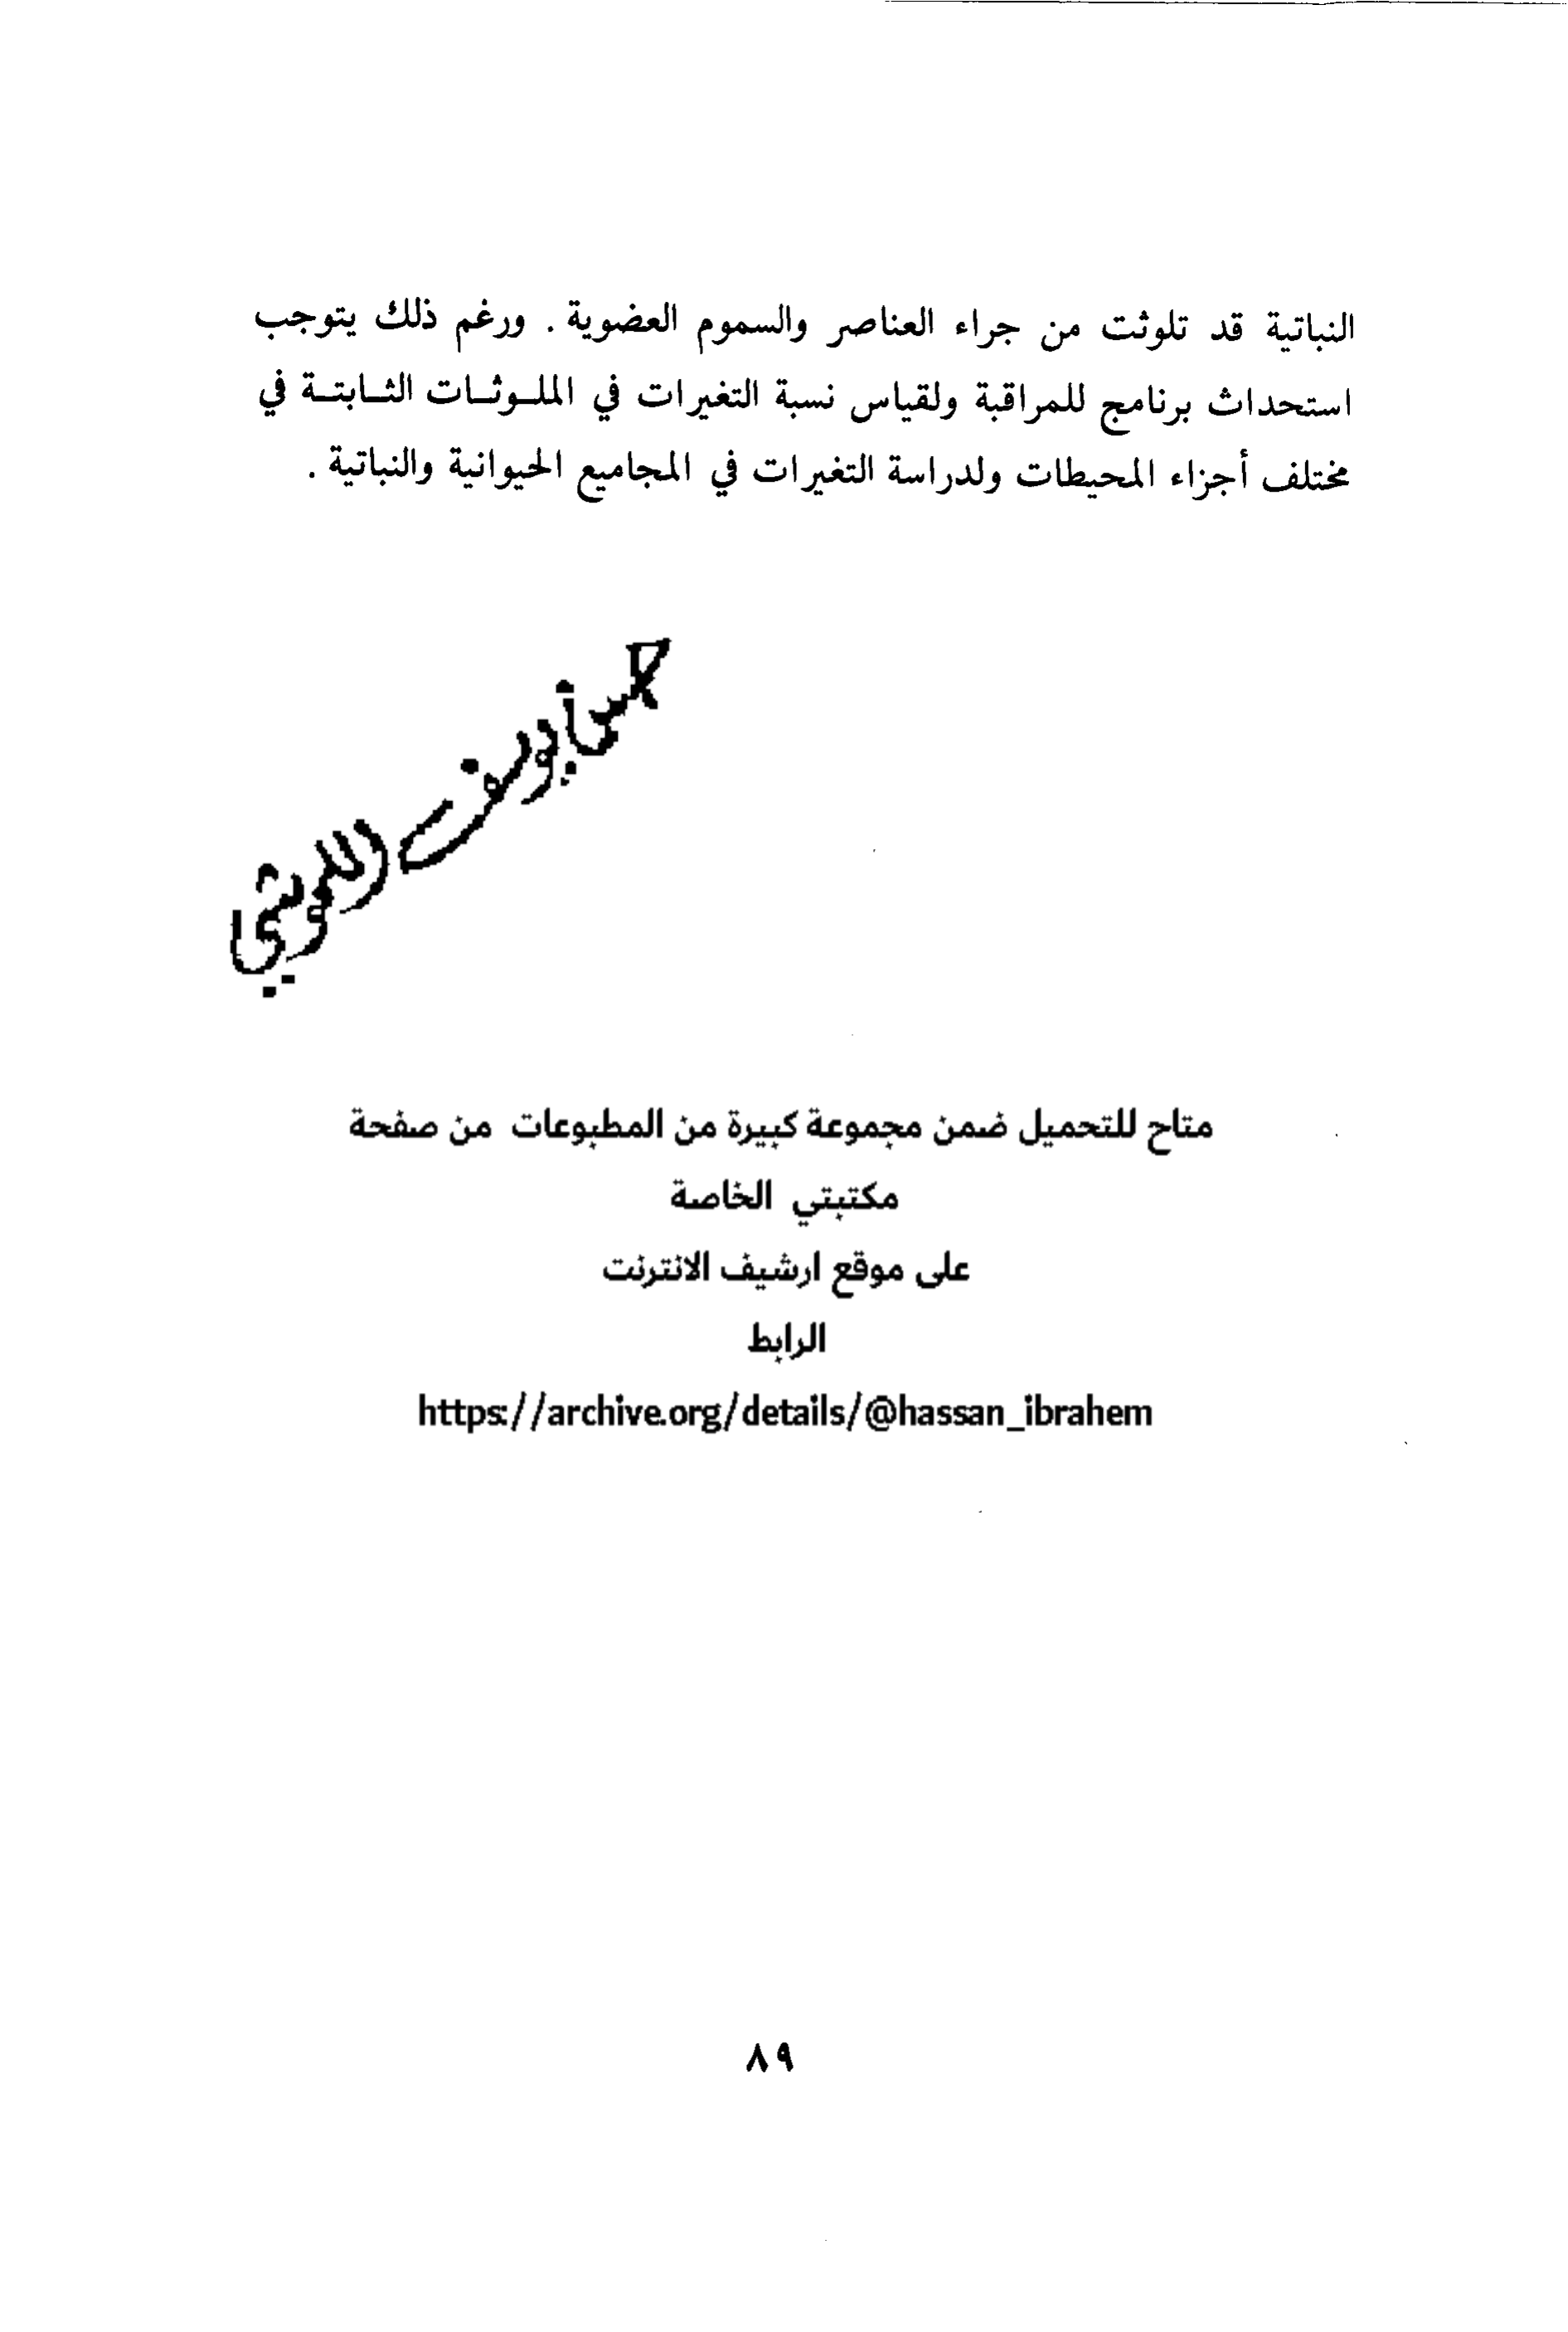 النباتية قد تلوثت من جراء العناصر والسموم العضوية . ورغم ذلك يتوجب
استحداث برنامج للمراقبة ولقياس نسبة التغيرات في الملـوثـات الثـابتـة في
مختلف أجزاء المحيطات ولدراسة التغيرات في المجاميع الحيوانية والنباتية .
متاح للتحميل ضمن مجموعة كبيرة من المطبوعات من صفحة
مكتبتي الخاصة
على موقع ارشيف الانترنت
الرابط
https://archive.org/details/@hassan_ibrahem
٨٩